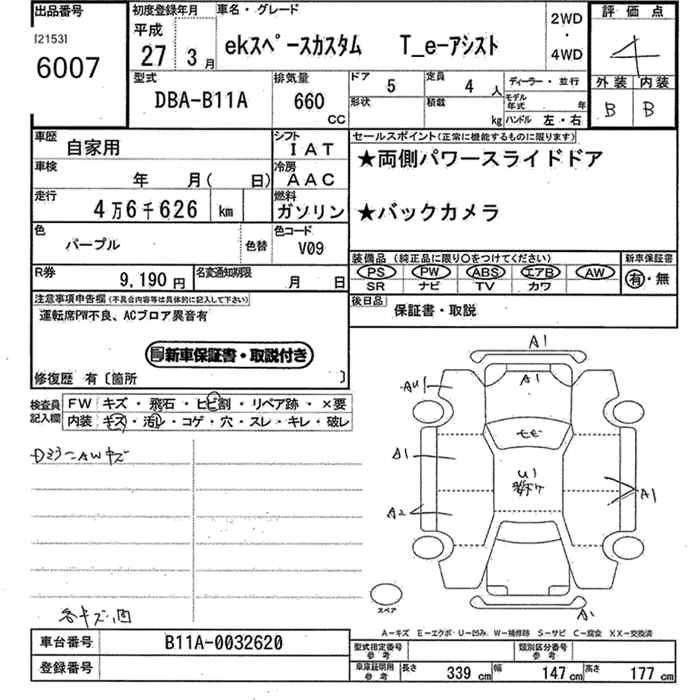 出品番号
[2153]
6007
初度登録年月
平成
27 3月
車名・グレード
ekスペースカスタム T_e-アシスト
2WD
・
4WD
評価点
4
外装 内装
B B
型式
DBA-B11A
排気量
660
CC
ドア
5
定員
4人
形状
積載
kg
ディーラー・並行
モデル年式 年
ハンドル 左・右
車歴
自家用
シフト
IAT
車検
年 月( 日)
冷房
AAC
走行
4万6千626 km
燃料
ガソリン
色
パープル
色替
色コード
V09
R券
9,190円
名変通知期限
月 日
セールスポイント(正常に機能するものに限ります)
★両側パワースライドドア
★バックカメラ
装備品(純正品に限り○をつけてください)
PS PW ABS エアB AW
SR ナビ TV カワ
新車保証書
有・無
後日品
保証書・取説
注意事項申告欄(不具合内容等は具体的に記入して下さい)
運転席PW不良、ACブロア異音有
新車保証書・取説付き
修復歴 有〔箇所 〕
検査員記入欄
FW キズ・飛石・ヒビ割・リペア跡・×要
内装 キズ・汚レ・コゲ・穴・スレ・キレ・破レ
Dミラー AWキズ
各キズ、凹
A1
A1
AU1
A1
A2
U1
A1
A1
スペア
A-キズ E-エクボ U-凹み W-補修跡 S-サビ C-腐食 XX-交換済
車台番号
B11A-0032620
登録番号
型式指定番号
参考
類別区分番号
参考
車庫証明用
参考
長さ 339cm 幅 147cm 高さ 177cm